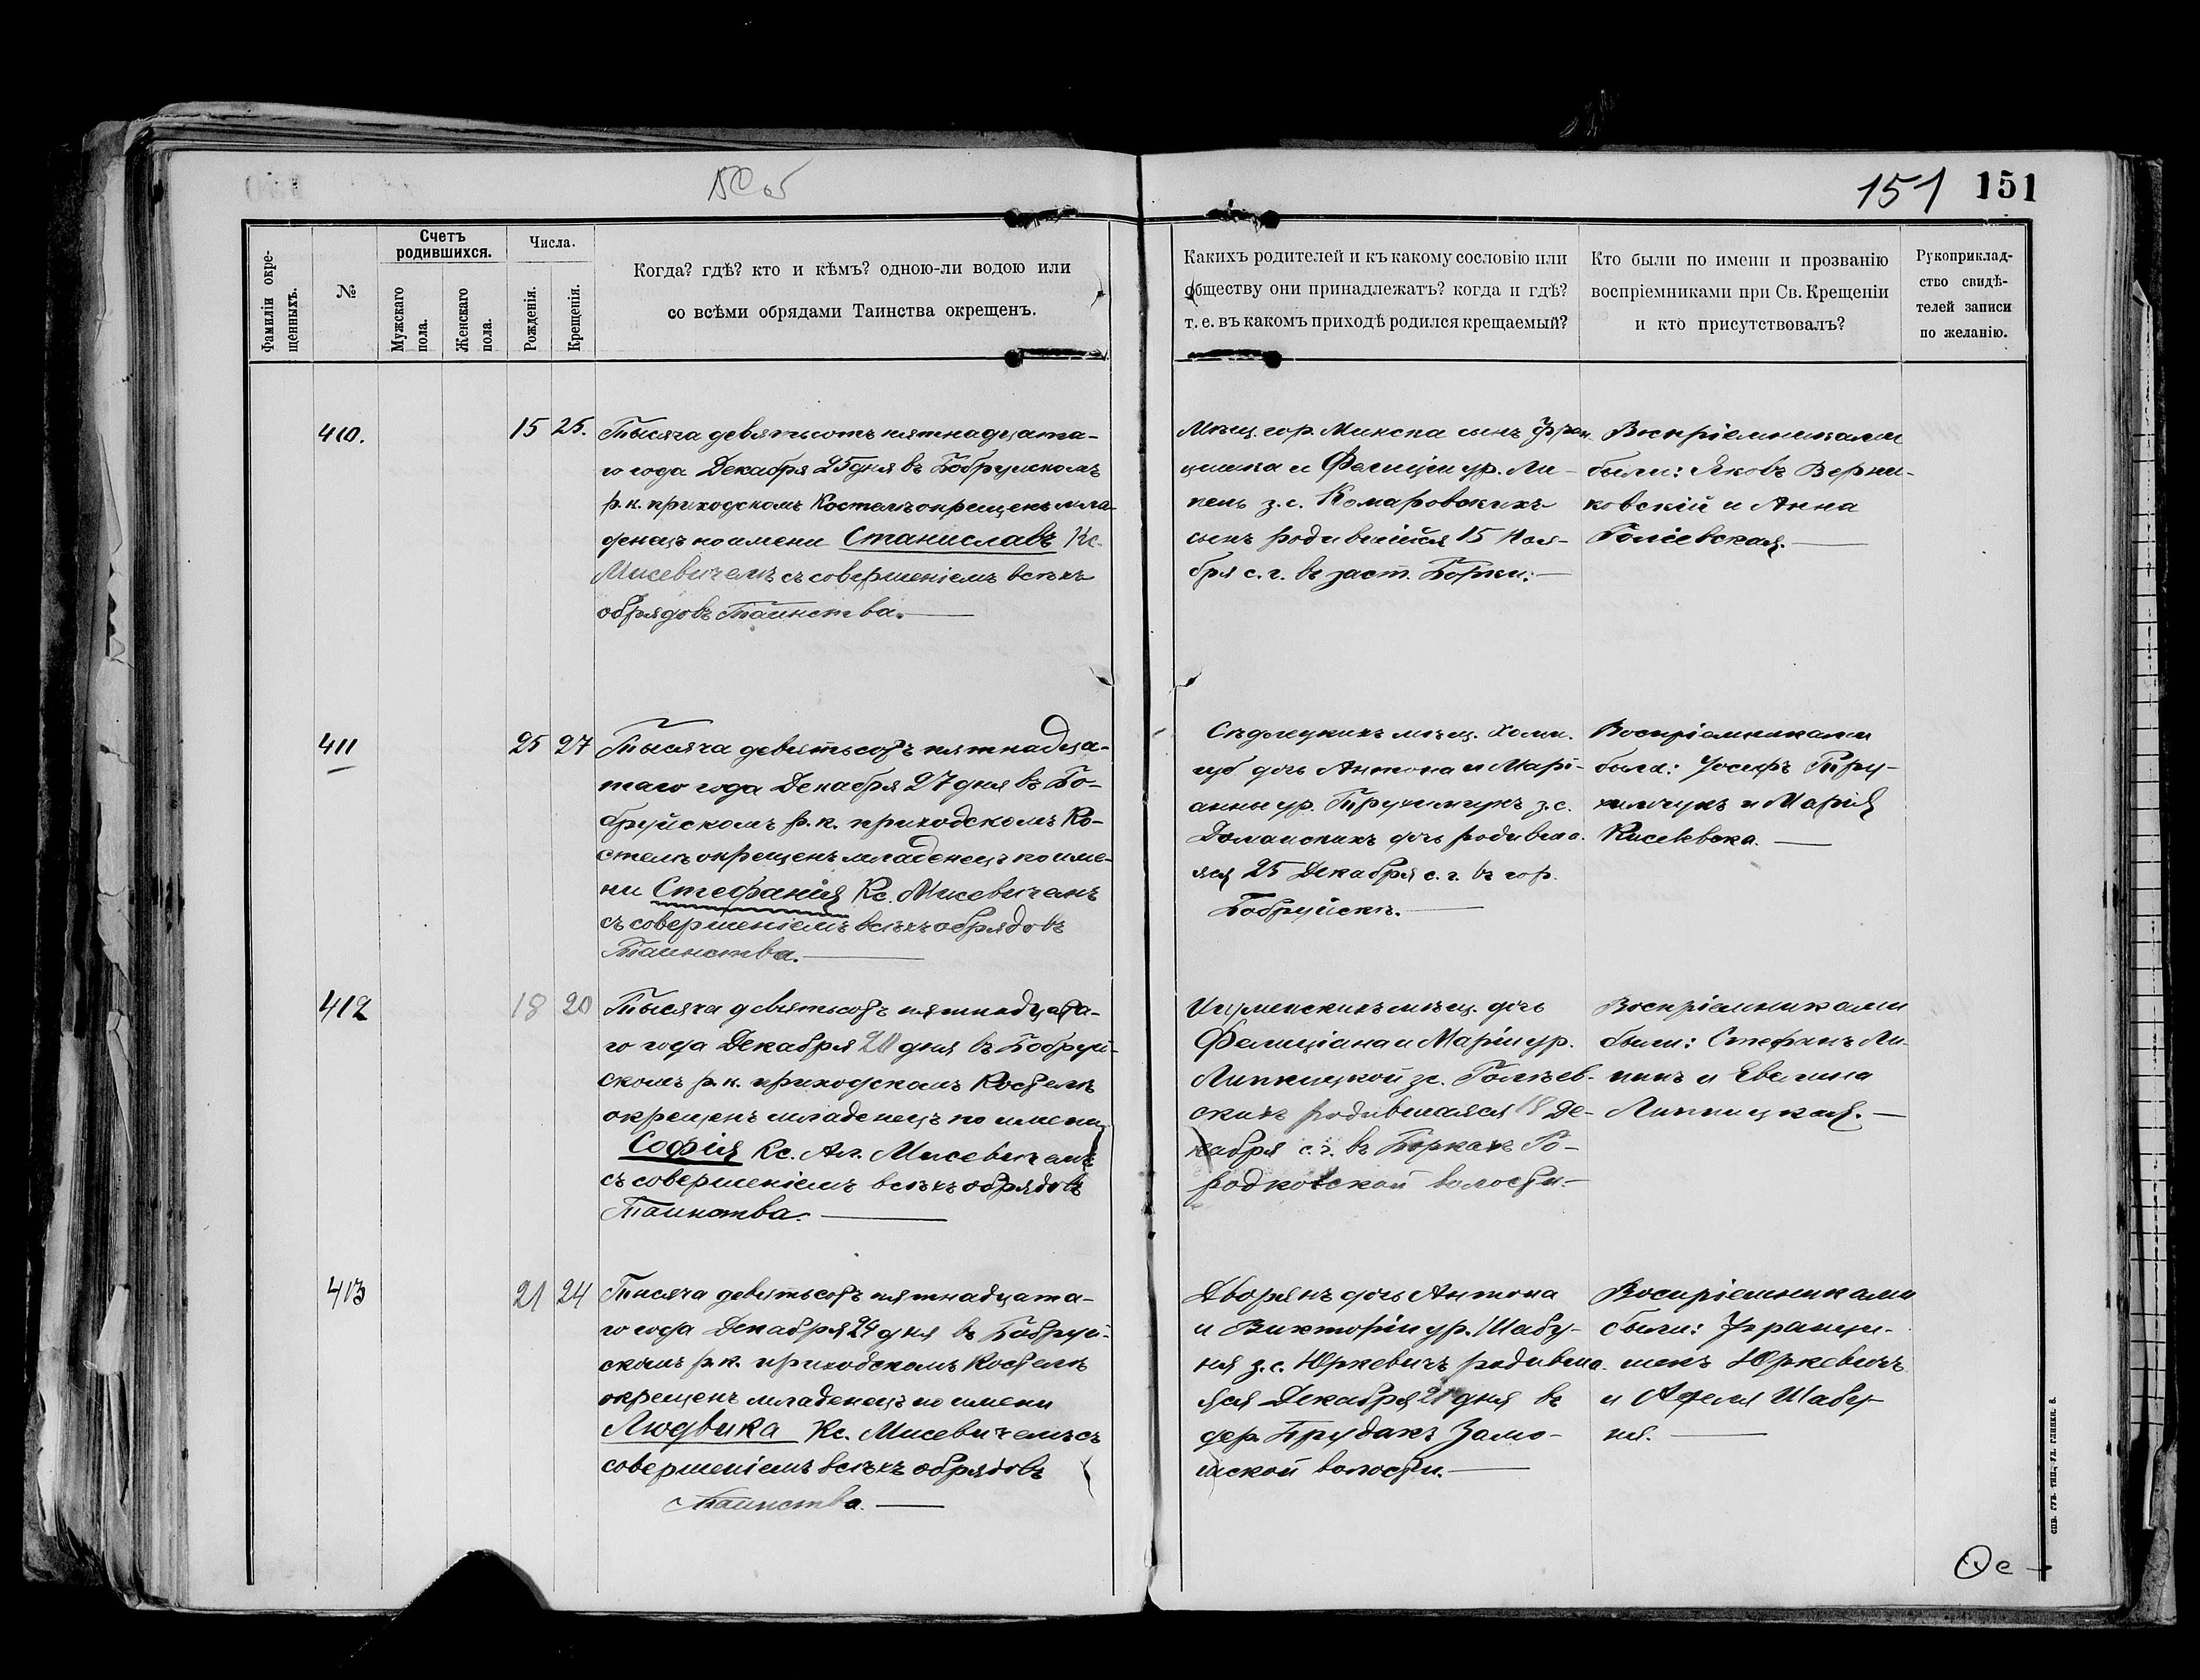 151 151
Фамиліи окре-
щенныхъ.
№
Счетъ
родившихся.
Мужскаго
пола.
Женскаго
пола.
Числа.
Рожденія.
Крещенія.
Когда? гдѣ? кто и кѣмъ? одною-ли водою или
со всѣми обрядами Таинства окрещенъ.
Какихъ родителей и къ какому сословію или
обществу они принадлежатъ? когда и гдѣ?
т. е. въ какомъ приходѣ родился крещаемый?
Кто были по имени и прозванію
воспріемниками при Св. Крещеніи
и кто присутствовалъ?
Рукоприклад-
ство свидѣ-
телей записи
по желанію.
410.
15 25.
Тысяча девятьсотъ пятнадцата-
го года Декабря 25 дня въ Бобруйскомъ
р. к. приходскомъ Костелѣ окрещенъ мла-
денецъ по имени Станиславъ Кс.
Мисевичемъ съ совершеніемъ всѣхъ
обрядовъ Таинства.
Мѣщ. гор. Минска сынъ Фран
цишка и Фелиціи ур. Ли-
пень з. с. Комаровскихъ
сынъ родившійся 15 Ноя-
бря с. г. въ заст. Борки.
Воспріемниками
были: Яковъ Верни-
ковскій и Анна
411
25 27
Тысяча девятьсотъ пятнадца-
таго года Декабря 27 дня въ Бо-
бруйскомъ р. к. приходскомъ Ко-
стелѣ окрещенъ младенецъ по име-
ни Стефанія Кс. Мисевичемъ
съ совершеніемъ всѣхъ обрядовъ
Таинства.
Сѣдлецкихъ мѣщ. Холм.
губ дочь Антона и Марі-
анны ур. з. с.
Доманскихъ дочь родивша
яся 25 Декабря с. г. въ гор.
Бобруйскѣ.
Воспріемниками
были: Іосифъ
и Марія
412
18 20
Тысяча девятьсотъ пятнадцата-
го года Декабря 20 дня въ Бобруй-
скомъ р. к. приходскомъ Костелѣ
окрещенъ младенецъ по имени
Софія Кс. Ал. Мисевичемъ
съ совершеніемъ всѣхъ обрядовъ
Таинства.
Игуменскихъ мѣщ. дочь
Фелиціана и Маріи ур.
Липницкой зс. Голѣев-
скихъ родившаяся 18 Де-
кабря с. г. въ Боркахъ Го-
родковской волости.
Воспріемниками
были: Стефанъ Ли-
пинъ и Евелина
Липницкая.
413
21 24
Тысяча девятьсотъ пятнадцата-
го года Декабря 24 дня въ Бобруй-
скомъ р. к. приходскомъ Костелѣ
окрещенъ младенецъ по имени
Людвика Кс. Мисевичемъ съ
совершеніемъ всѣхъ обрядовъ
Таинства.
Дворянъ дочь Антона
и Викторіи ур. Шабу-
ня з. с. Юркевичъ родивша
яся Декабря 21 дня въ
дер. Прудахъ Замо-
шской волости.
Воспріемниками
были: Франци-
шекъ Юркевичъ
и Аделя Шабу-
ня.
СПБ. ГУБ. ТИП., УЛ. ГЛИНКИ. 8.